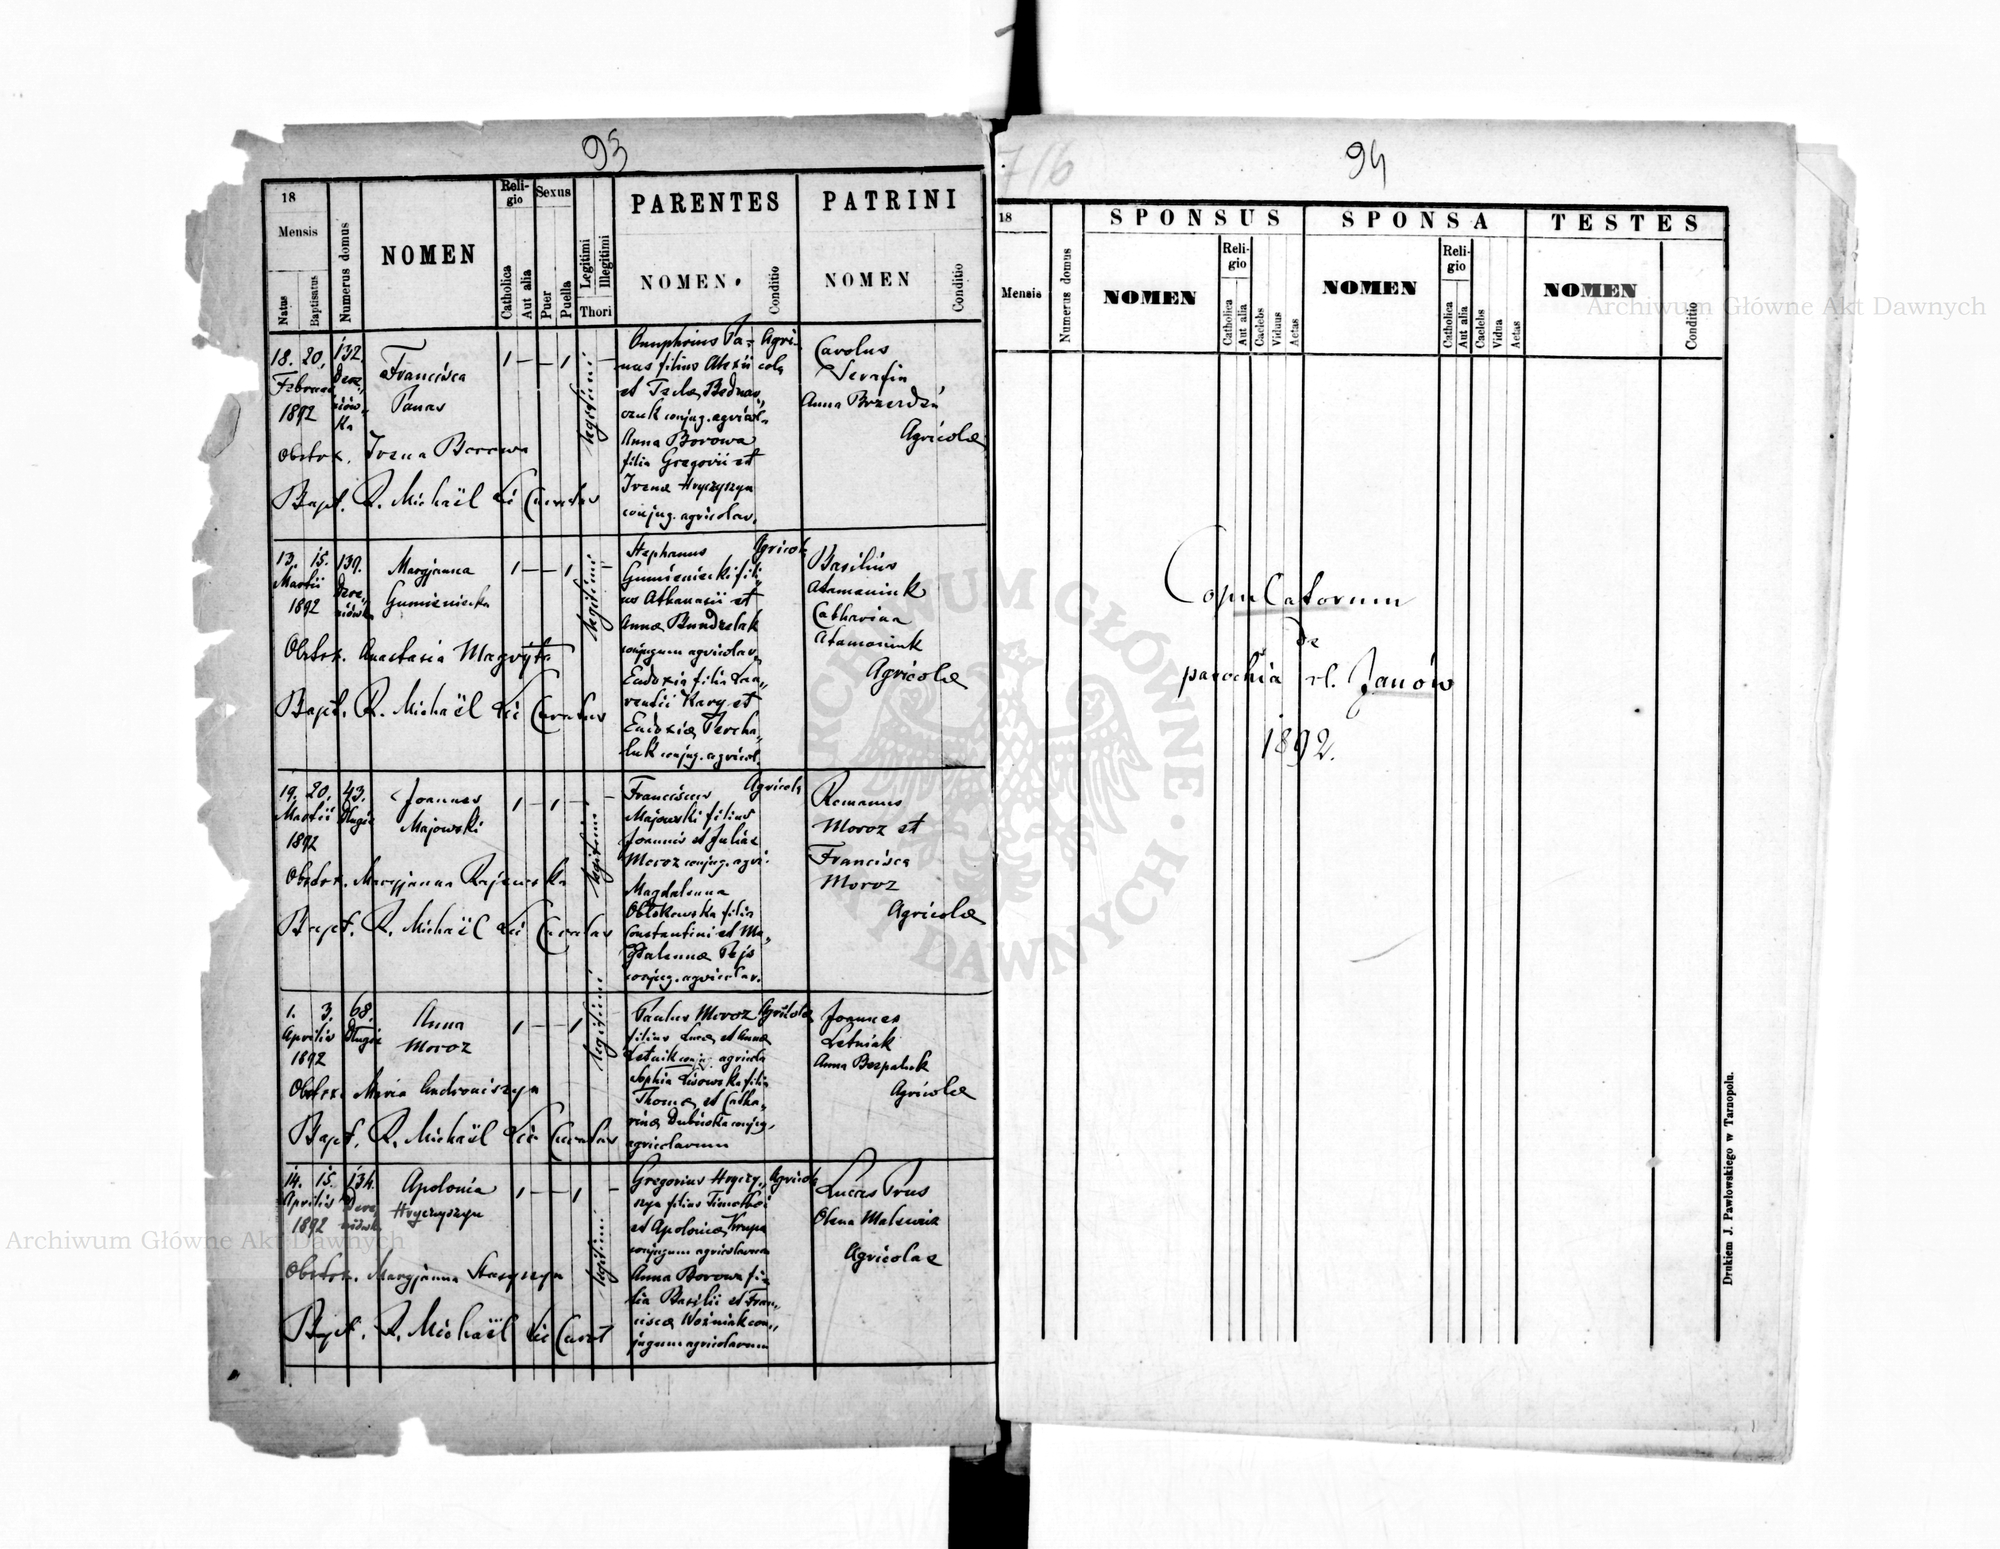 93
18
Mensis
Natus
Baptisatus
Numerus domus
NOMEN
Religio
Catholica
Aut alia
Sexus
Puer
Puella
Legitimi
Illegitimi
Thori
PARENTES
NOMEN.
Conditio
PATRINI
NOMEN
Conditio
18. 20. 132.
Februar
1892
Francisca
Panas
1 — 1 —
legitimi
Onuphrius Pa=
nas filius Alexii
et Teclae Bednar„
czuk conjug. agricol.
Anna Borowa
filia Gregorii et
Irenae Hryczyszyn
conjug. agricolar.
Agri-
cola
Carolus
Serafin
Anna
Agricolae
Obstetr. Irena Borowa
Bapt. R. Michaël Curatus
13. 15. 139.
Martii
1892
Maryanna
Gumieniecka
1 — 1
legitimi
Stephanus
Gumieniecki fili„
us Athanasii et
Annae Bundzelak
conjugum agricolar.
Eudoxia filia Lau„
rentii Kary et
Eudoxiae Percha„
luk conjug. agricol.
Agricola
Basilius
Atamaniuk
Catharina
Atamaniuk
Agricolae
Obstetr. Anastasia Magryta
Bapt. R. Michaël Curatus
19. 20. 43.
Martii Długie
1892
Joannes
Majowski
1 — 1 — —
legitimi
Franciscus
Majowski filius
Joannis et Juliae
Moroz conjug. agri.
Magdalenna
filia
Constantini et Ma„
gdalennae
conjug. agricolar.
Agricola
Romanus
Moroz et
Francisca
Moroz
Agricolae
Obstetr. Maryanna
Bapt. R. Michaël Curatus
1. 3. 68.
Aprilis Długie
1892
Anna
Moroz
1 — 1
legitimi
Paulus Moroz
filius Lucae et Annae
Letnik conjug. agricol.
Sophia Lisowska filia
Thomae et Catha„
rinae Dubinska conjug.
agricolarum
Agricola
Joannes
Letniak
Anna Bezpaluk
Agricolae
Obstetr. Maria Andronisczyn
Bapt. R. Michaël Curatus
14. 15. 134.
Aprilis
1892
Apolonia
Hryczyszyn
1 — 1 —
legitimi
Gregorius Hryczy„
szyn filius Timothei
et Apoloniae Krupa
conjugum agricolarum
Anna Borowa fi„
lia Basilii et Fran„
ciscae Woźniak con„
jugum agricolarum
Agricola
Lucas Prus
Olena
Agricolae
Obstetr. Maryanna
Bapt. R. Michaël Curat
716
94
18
Mensis
Numerus domus
SPONSUS
NOMEN
Religio
Catholica
Aut alia
Caelebs
Viduus
Aetas
SPONSA
NOMEN
Religio
Catholica
Aut alia
Caelebs
Vidua
Aetas
TESTES
NOMEN
Conditio
Copulatorum
de
parochia r.l. Janów
1892.
Drukiem J. Pawłowskiego w Tarnopolu.
Archiwum Główne Akt Dawnych
Archiwum Główne Akt Dawnych
ARCHIWUM GŁÓWNE • AKT DAWNYCH •